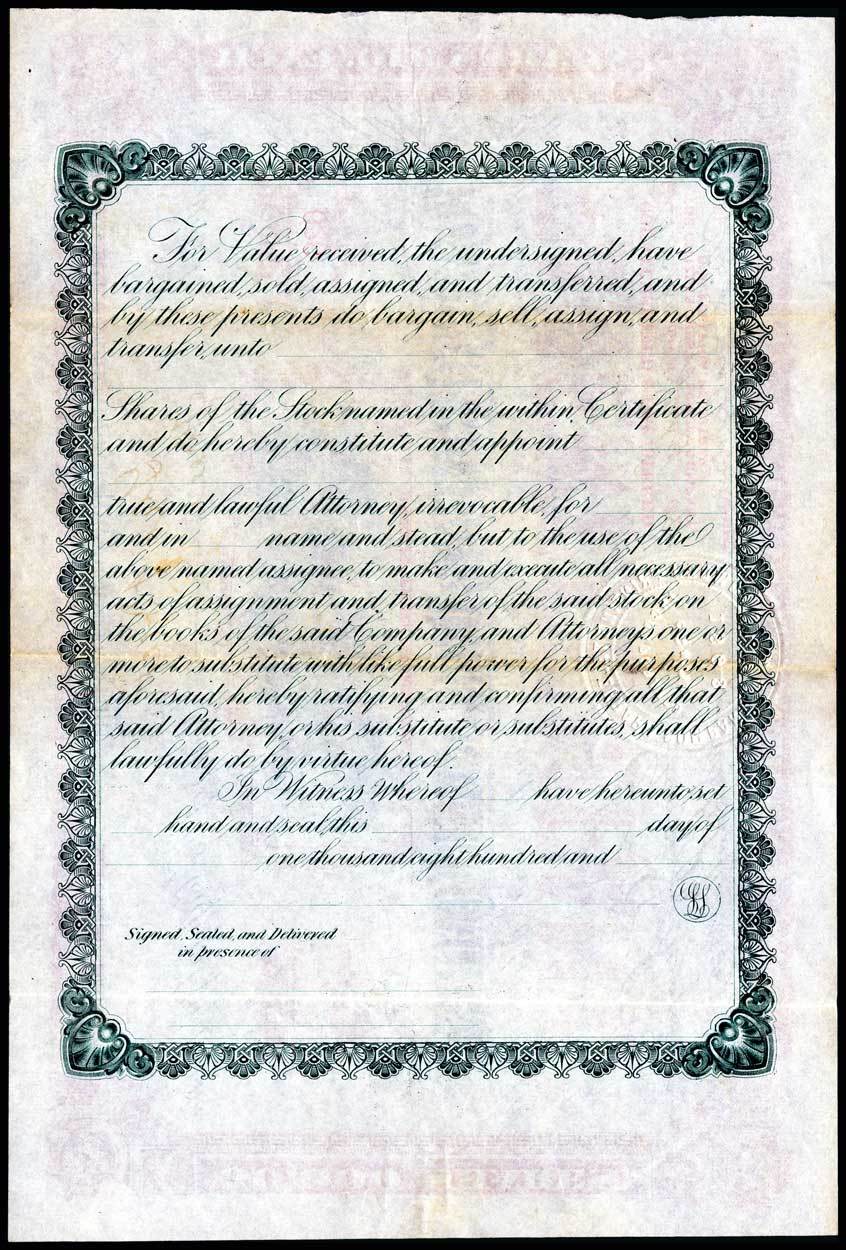 For Value received, the undersigned, have
bargained, sold, assigned, and transferred, and
by these presents do bargain, sell, assign, and
transfer, unto
Shares of the Stock named in the within Certificate
and do hereby constitute and appoint
true and lawful Attorney, irrevocable, for
and in name and stead, but to the use of the
above named assignee, to make and execute all necessary
acts of assignment and transfer of the said stock on
the books of the said Company, and Attorneys one or
more to substitute with like full power for the purposes
aforesaid, hereby ratifying and confirming all that
said Attorney, or his substitute or substitutes, shall
lawfully do by virtue hereof.
In Witness Whereof have hereunto set
hand and seal this day of
one thousand eight hundred and
LS
Signed, Sealed, and Delivered
in presence of